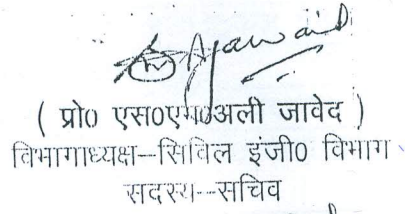 ( प्रो0 एस0एम0अली जावेद )
विभागाध्यक्ष–सिविल इंजी0 विभाग
सदस्य--सचिव